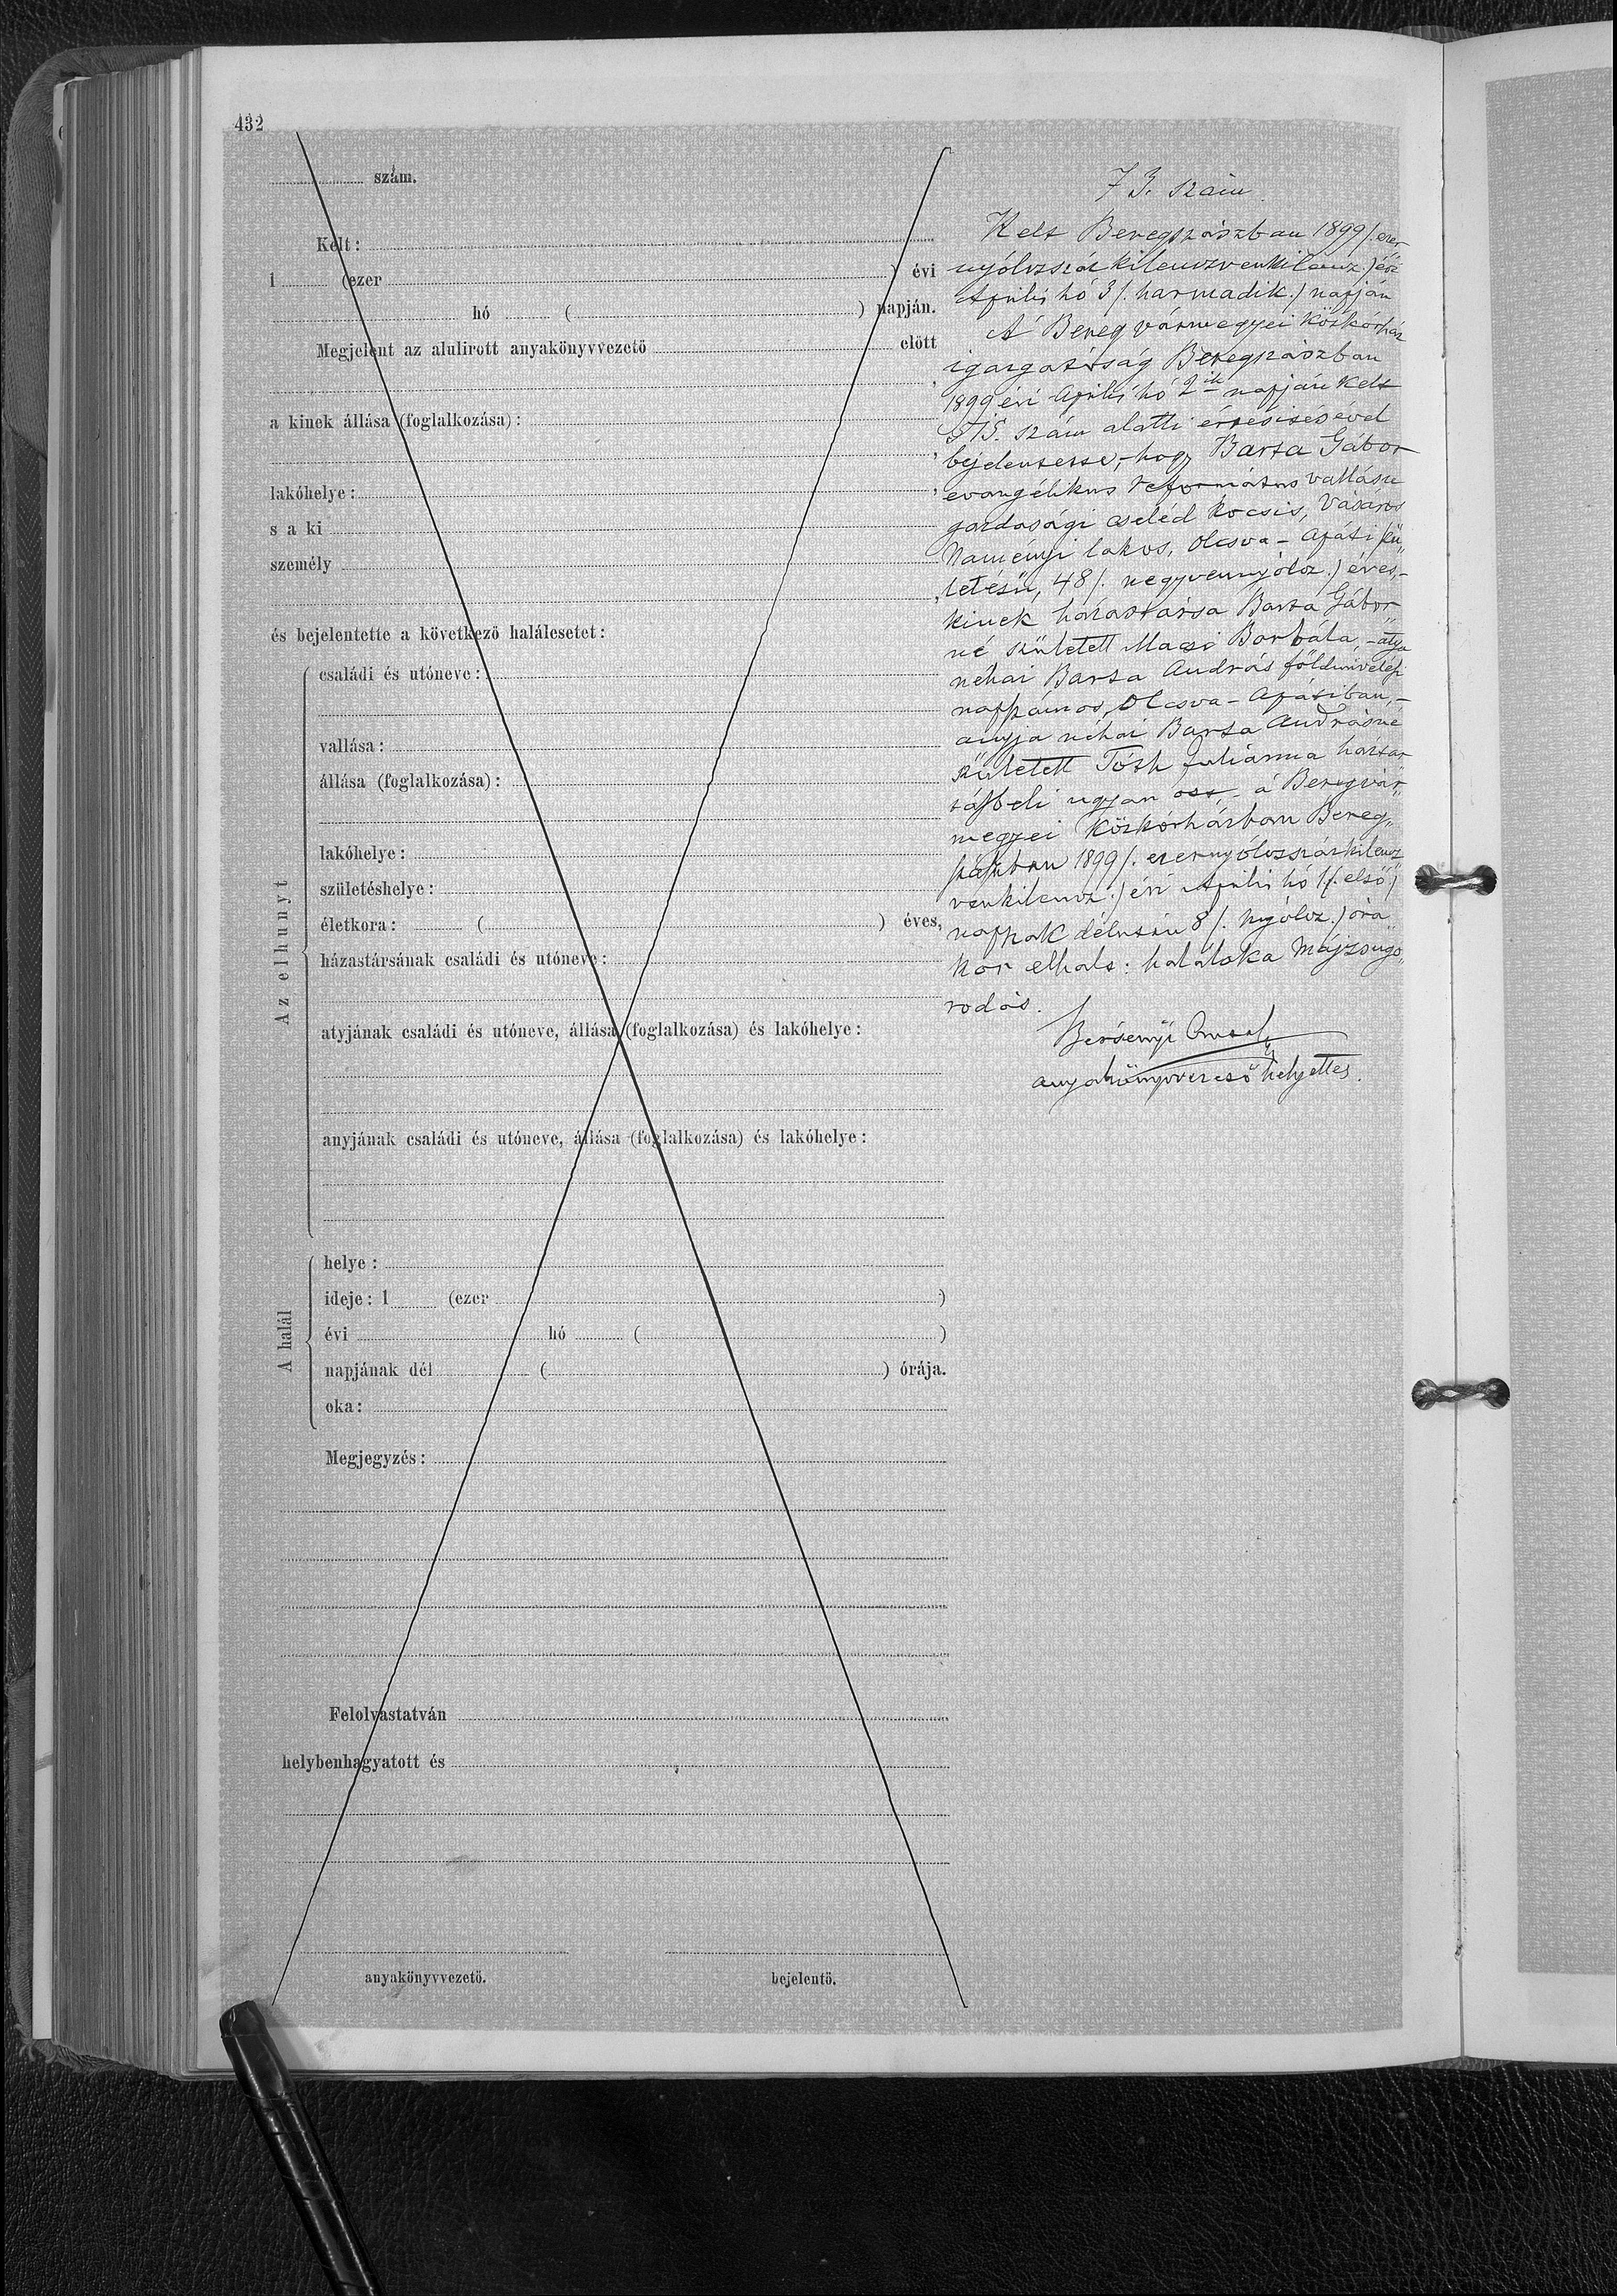 432
szám.
Kelt:
1 (ezer ) évi
hó ( ) napján.
Megjelent az alulirott anyakönyvvezető előtt
,
a kinek állása (foglalkozása):
,
lakóhelye: ,
s a ki
személy
,
és bejelentette a következő halálesetet:
Az elhunyt
családi és utóneve:
vallása:
állása (foglalkozása):
lakóhelye:
születéshelye:
életkora: ( ) éves,
házastársának családi és utóneve:
atyjának családi és utóneve, állása (foglalkozása) és lakóhelye:
anyjának családi és utóneve, állása (foglalkozása) és lakóhelye:
A halál
helye:
ideje: 1 (ezer )
évi hó ( )
napjának dél ( ) órája.
oka:
Megjegyzés:
Felolvastatván
helybenhagyatott és
anyakönyvvezető. bejelentő.
73. szám.
Kelt Beregszászban 1899 /. ezer
nyólczszázkilenczvenkilencz ./ évi
Április hó 3 /. harmadik ./ napján
A' Bereg vármegyei közkórház
igazgatóság Beregszászban
1899 évi Április hó 2ik napján kelt
515. szám alatti értesitésével
bejelentette, - hogy Barta Gábor
evangélikus református vallásu
gazdasági cseléd kocsis, Vásáros
Naményi lakos, Olcsva - Apáti szü„
letésü, 48 /. negyvennyólcz ./ éves, -
kinek házastársa Barta Gábor„
né született Macsi Borbála, - atyja
néhai Barta András földmivelési
napszámos, Olcsva - Apátiban, -
anyja néhai Barta Andrásné
született Tóth Juliánna háztar„
tásbeli ugyan ott, - a' Beregvár„
megyei Közkórházban Bereg„
szászban 1899 /. ezernyólczszázkilencz„
venkilencz ./ évi Április hó 1 /. első ./
napnak délután 8 /. nyólcz ./ óra„
kor elhalt: haláloka Májzsugo„
rodás.
Bersényi
anyakönyvvezető helyettes.